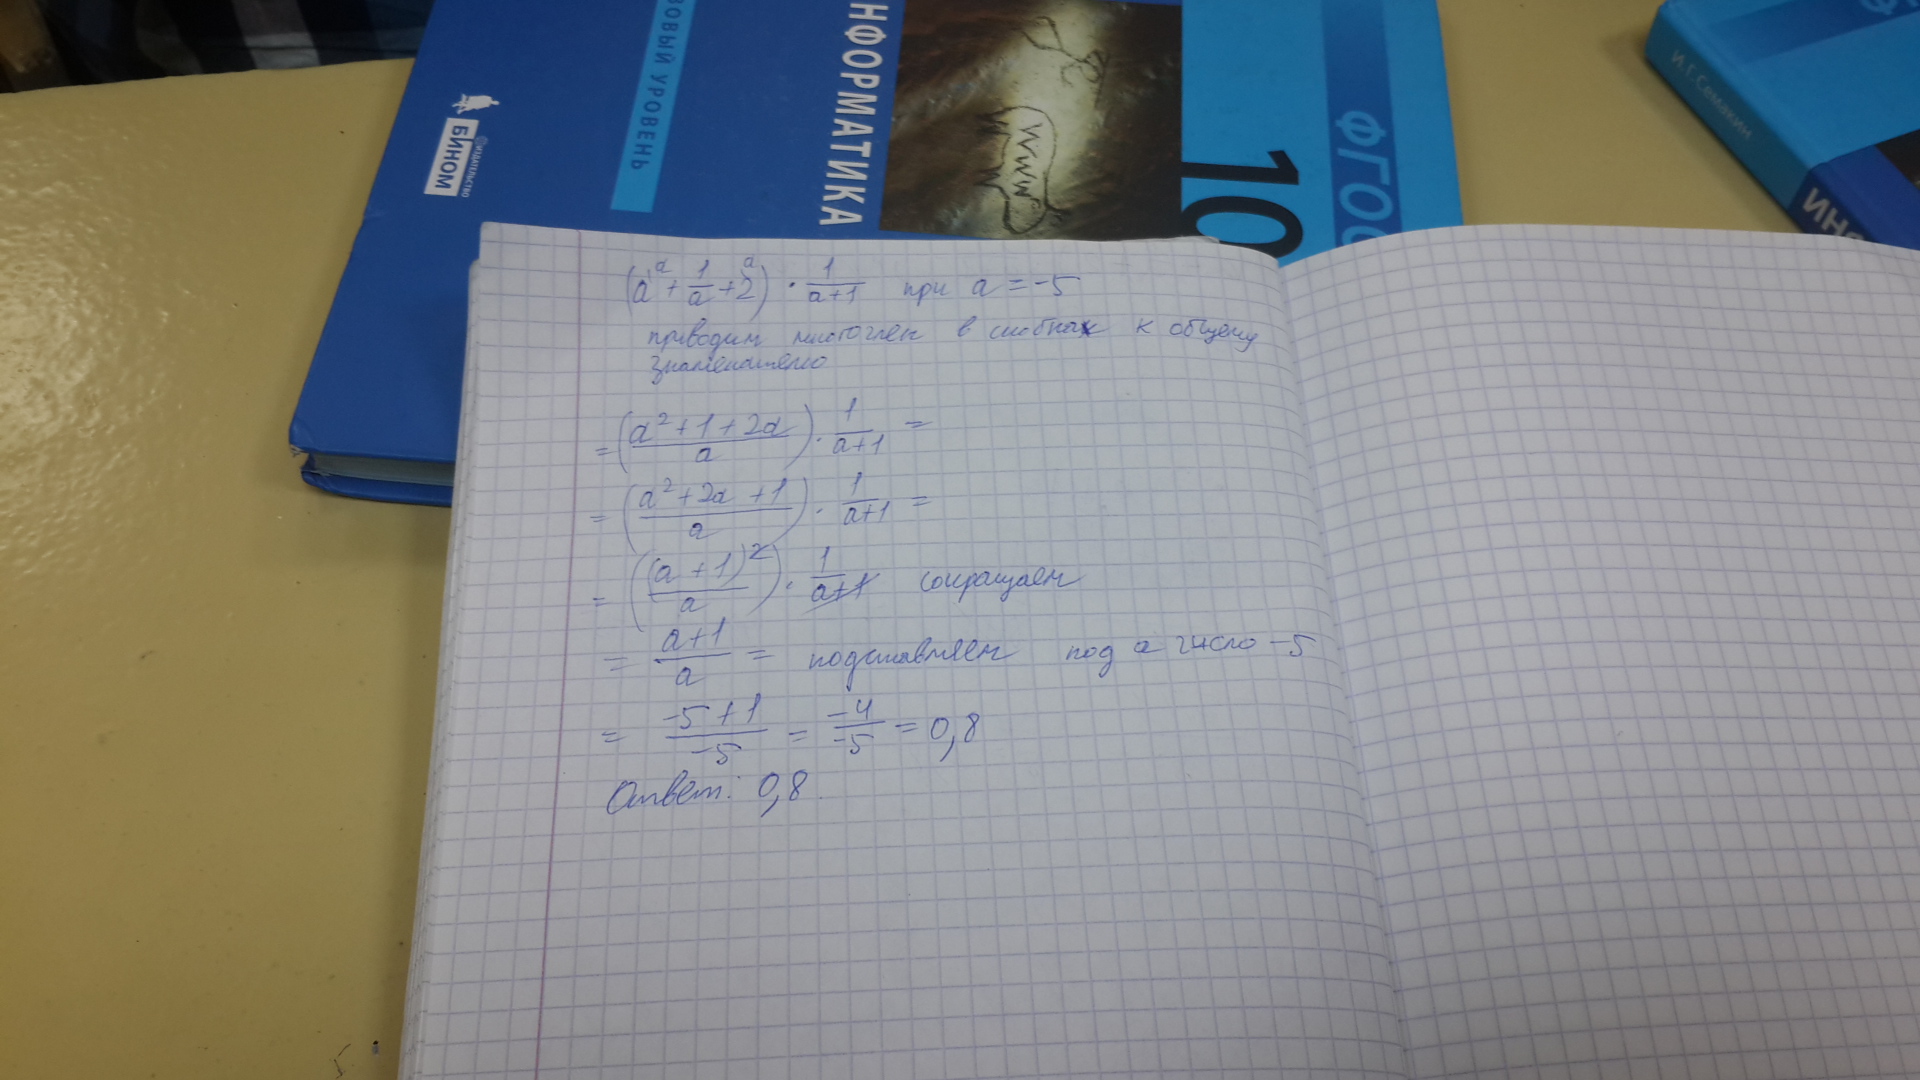 ЗОВЫЙ УРОВЕНЬ
ИЗДАТЕЛЬСТВО
БИНОМ
НФОРМАТИКА
10
ФГОС
И.Г.Семакин
ИН
(a^a + 1/a + 2^a) · 1/(a+1) при a = -5
приводим многочлен в скобках к общему
знаменателю
= ((a² + 1 + 2a)/a) · 1/(a+1) =
= ((a² + 2a + 1)/a) · 1/(a+1) =
= ((a + 1)²/a) · 1/(a+1) сокращаем
= (a+1)/a = подставляем под a число -5
= (-5+1)/(-5) = (-4)/(-5) = 0,8
Ответ: 0,8.